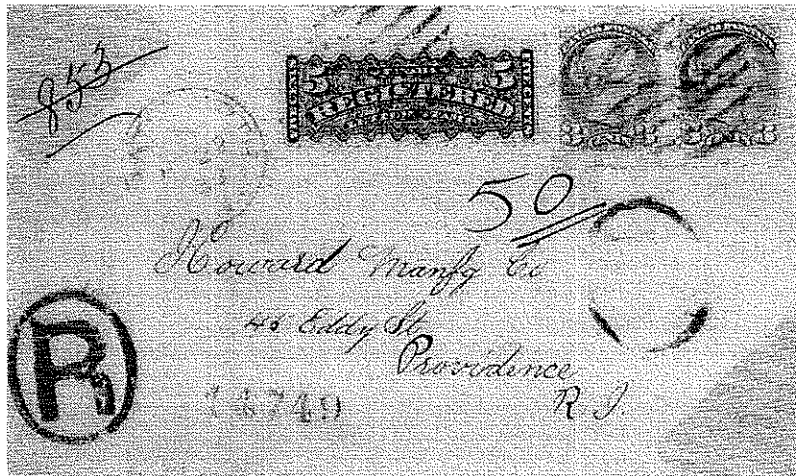 853
5 5
REGISTERED
50
Howard Manfg Co
Eddy St
Providence
R. I.
R